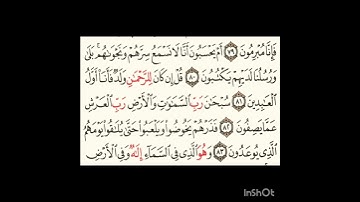 فَإِنَّا مُبْرِمُونَ ٧٩ أَمْ يَحْسَبُونَ أَنَّا لَا نَسْمَعُ سِرَّهُمْ وَنَجْوَىٰهُم ۚ بَلَىٰ
وَرُسُلُنَا لَدَيْهِمْ يَكْتُبُونَ ٨٠ قُلْ إِن كَانَ لِلرَّحْمَٰنِ وَلَدٌ فَأَنَا۠ أَوَّلُ
الْعَٰبِدِينَ ٨١ سُبْحَٰنَ رَبِّ السَّمَٰوَٰتِ وَالْأَرْضِ رَبِّ الْعَرْشِ
عَمَّا يَصِفُونَ ٨٢ فَذَرْهُمْ يَخُوضُوا۟ وَيَلْعَبُوا۟ حَتَّىٰ يُلَٰقُوا۟ يَوْمَهُمُ
الَّذِى يُوعَدُونَ ٨٣ وَهُوَ الَّذِى فِى السَّمَآءِ إِلَٰهٌ وَفِى الْأَرْضِ
InShOt